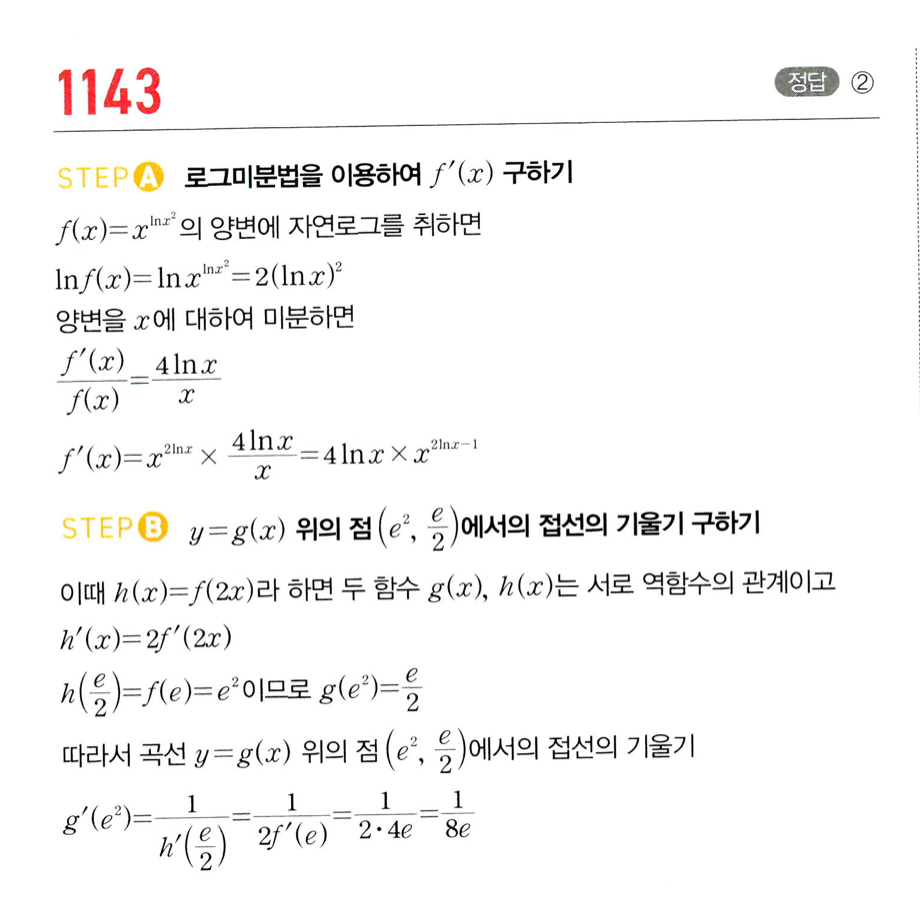 1143
정답 ②
STEP A 로그미분법을 이용하여 f′(x) 구하기
f(x)=x^{lnx²}의 양변에 자연로그를 취하면
lnf(x)=lnx^{lnx²}=2(lnx)²
양변을 x에 대하여 미분하면
f′(x)/f(x)=4lnx/x
f′(x)=x^{2lnx}×4lnx/x=4lnx×x^{2lnx-1}
STEP B y=g(x) 위의 점(e², e/2)에서의 접선의 기울기 구하기
이때 h(x)=f(2x)라 하면 두 함수 g(x), h(x)는 서로 역함수의 관계이고
h′(x)=2f′(2x)
h(e/2)=f(e)=e²이므로 g(e²)=e/2
따라서 곡선 y=g(x) 위의 점(e², e/2)에서의 접선의 기울기
g′(e²)=1/h′(e/2)=1/2f′(e)=1/2·4e=1/8e